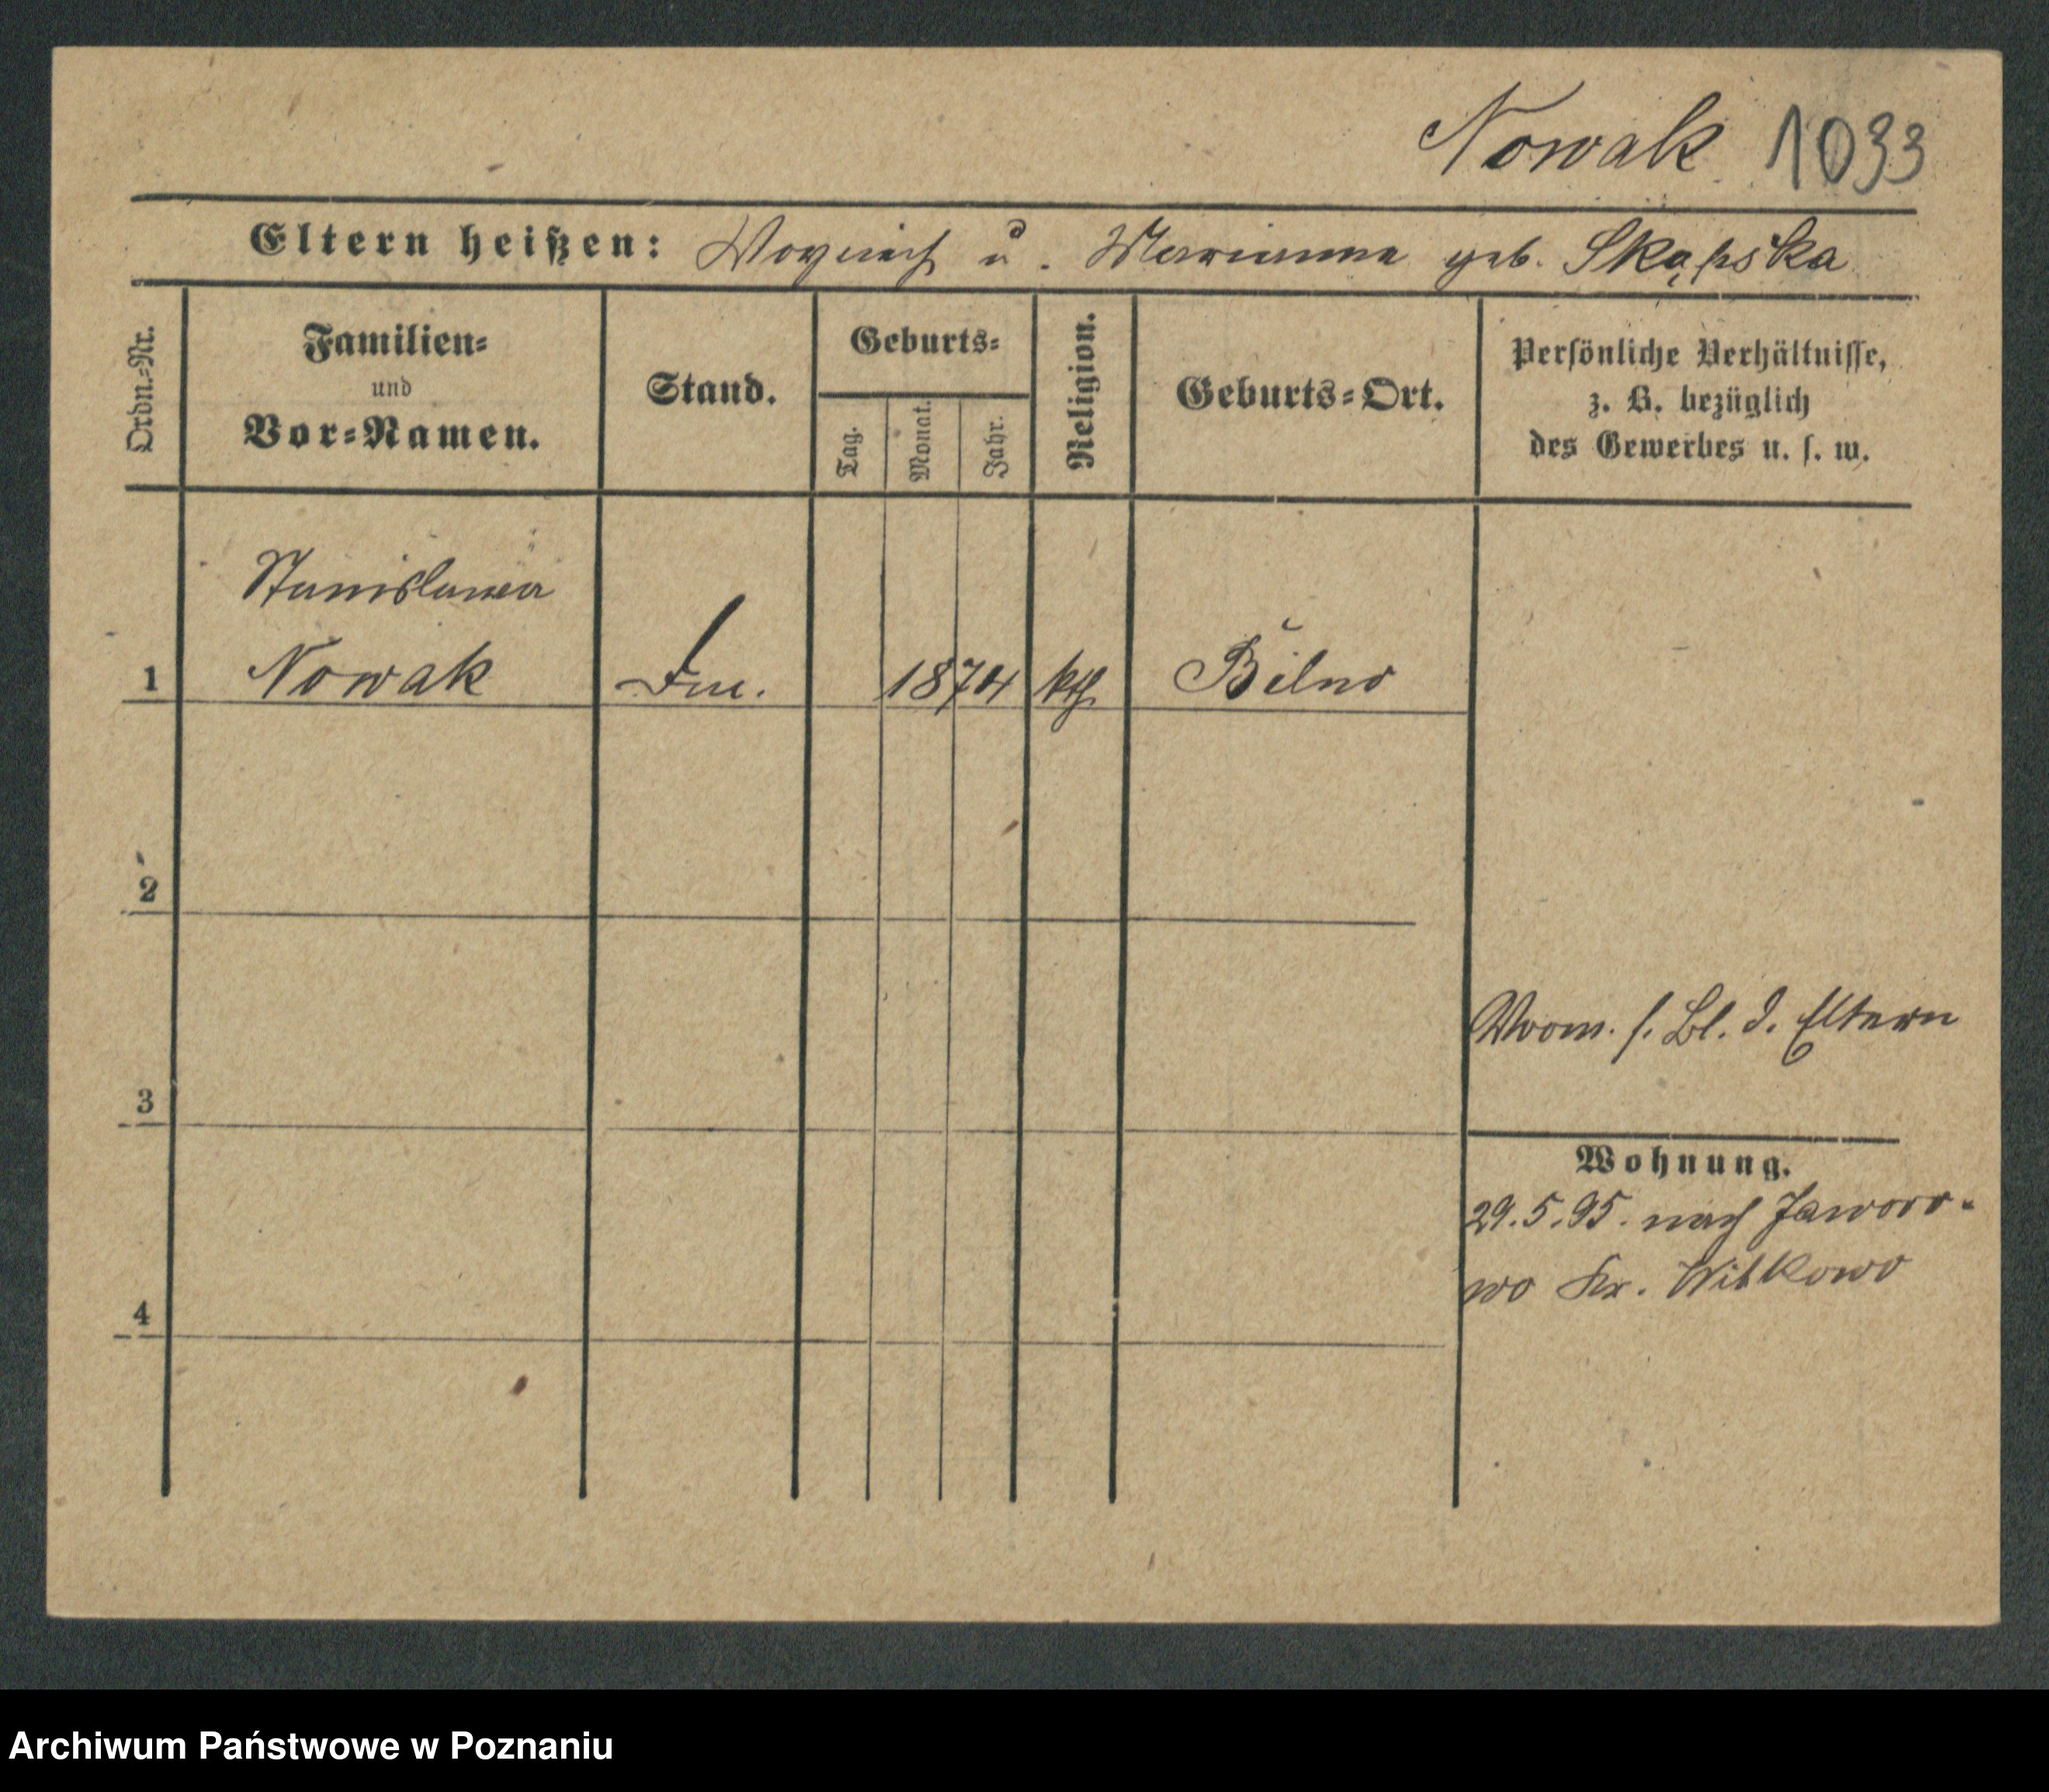 Nowak 1033
Eltern heißen: Woyciech u. Marianna geb. Skąpska
Ordn.-Nr.
Familien-
und
Vor-Namen.
Stand.
Geburts-
Tag.
Monat.
Jahr.
Religion.
Geburts-Ort.
Persönliche Verhältnisse,
z. B. bezüglich
des Gewerbes u. s. w.
Stanislawa
1 Nowak 1874 kth. Bilno
2
s. Bl. d. Eltern
3
Wohnung.
29.5.95. nach Jaworo-
wo Kr. Witkowo
4
Archiwum Państwowe w Poznaniu